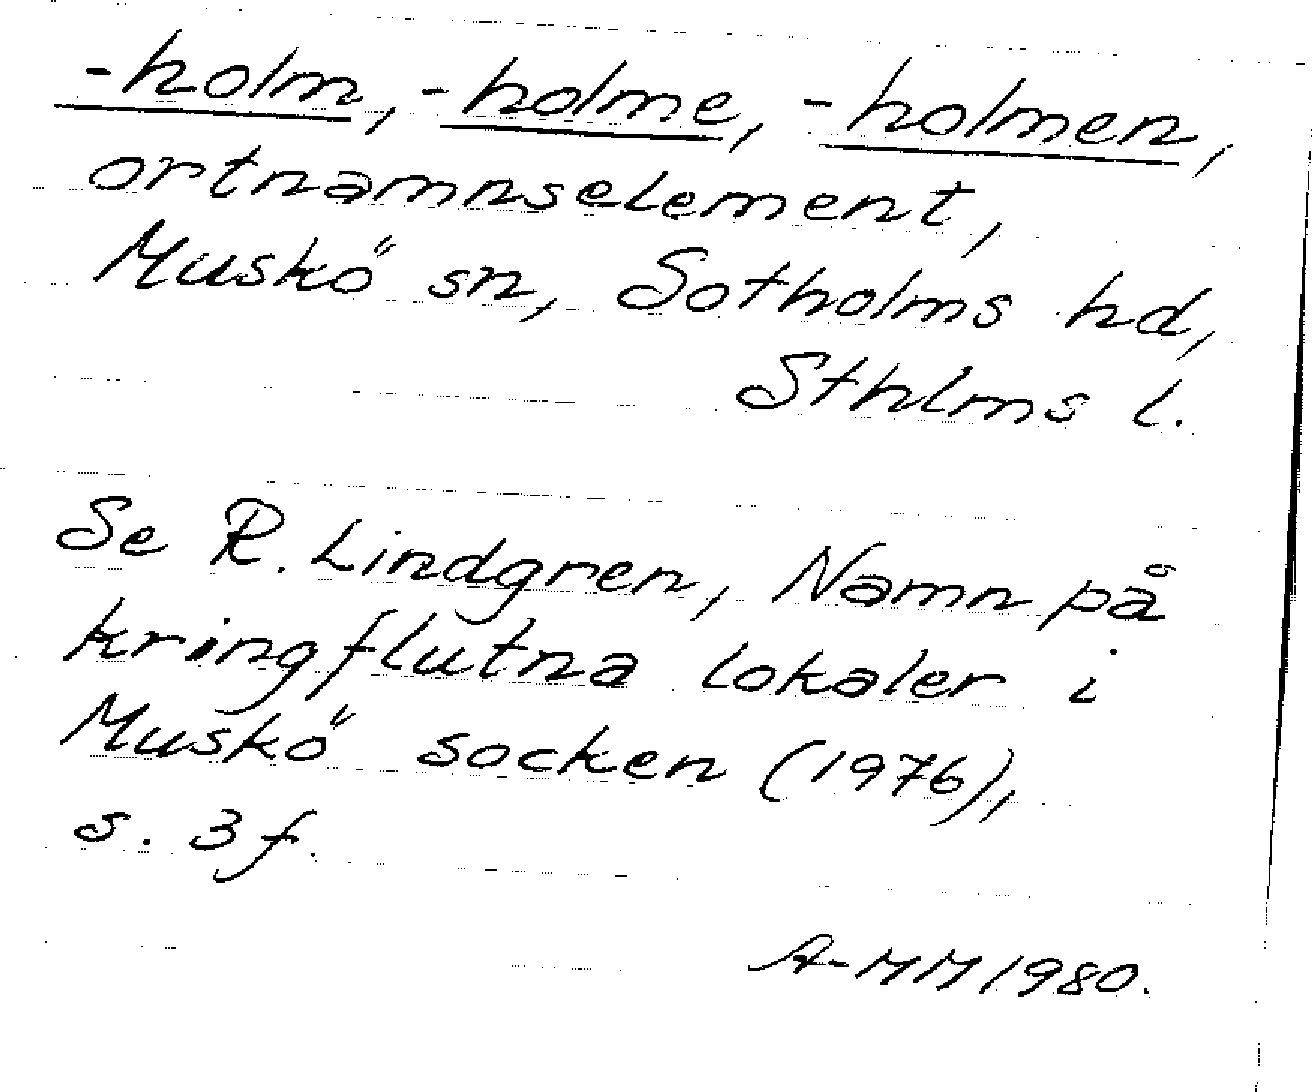 -holm, -holme, -holmen,
ortnamnselement,
Muskö sn, Sotholms hd,
Sthlms l.
Se R. Lindgren, Namn på
kringflutna lokaler i
Muskö socken (1976),
s. 3 f.
A-MM 1980.